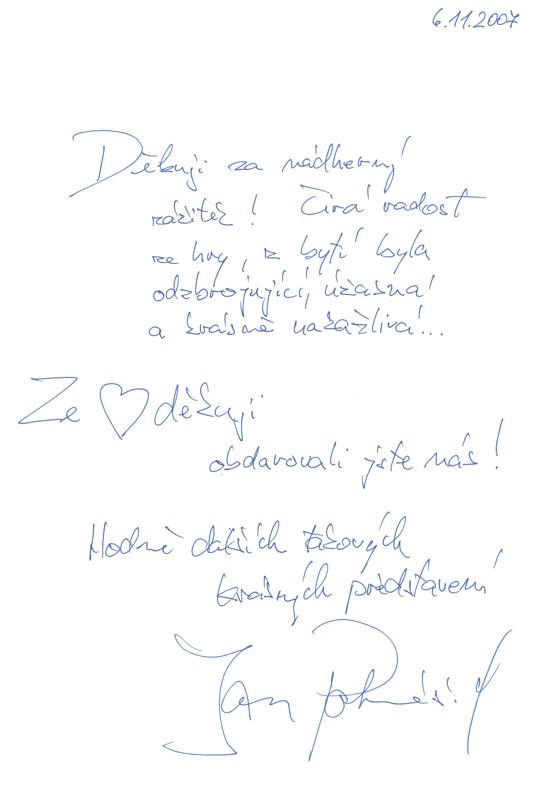 6.11.2007
Děkuji za nádherný
zážitek! Čirá radost
ze hry, z bytí byla
odzbrojující, úžasná
a krásně nakažlivá...
Ze ♡ děkuji
obdarovali jste nás!
Hodně dalších takových
krásných představení
Jan